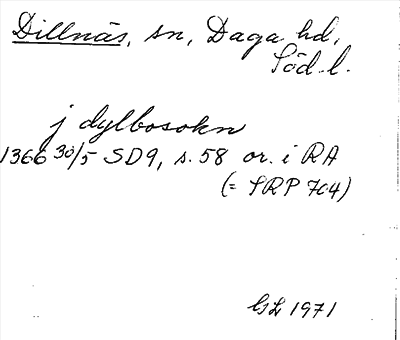 Dillnäs, sn, Daga hd,
Söd. l.
j dylbosokn
1366 30/5 SD9, s. 58 or. i RA
(= SRP 704)
GL 1971